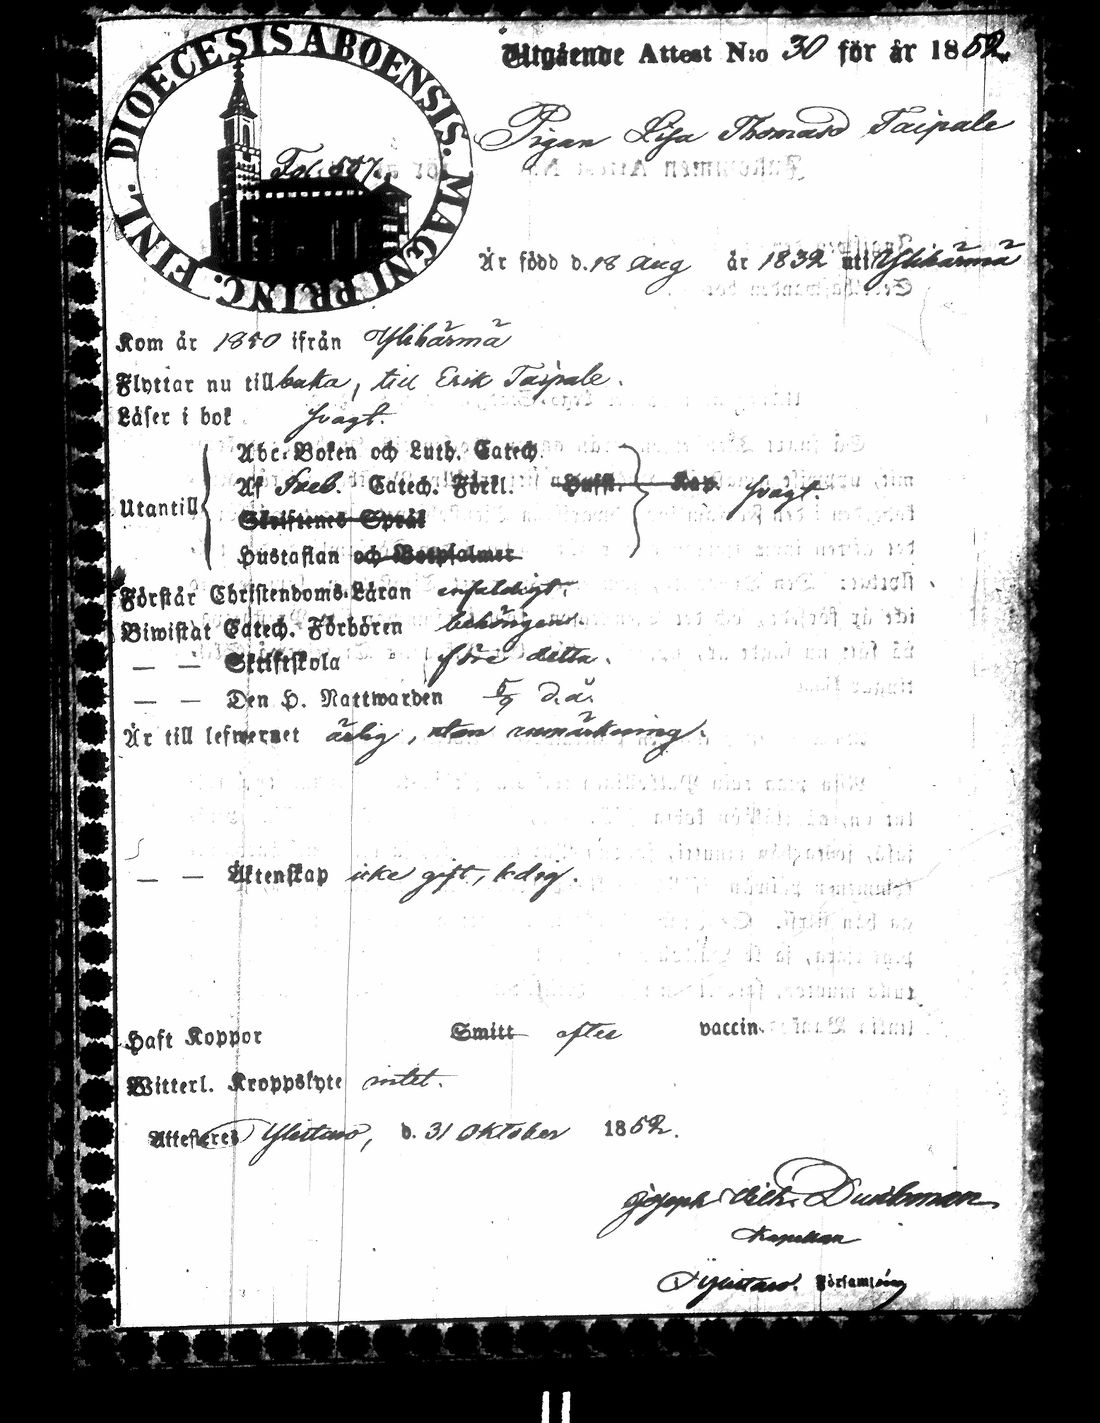 DIOECESIS ABOENSIS. MAGNI PRINC. FINL.
Utgående Attest N:o 30 för år 1852.
Fol. 557.
Pigan Lisa Thomasd Taipale
Är född d. 18 Aug år 1832 uti Ylihärmä
Kom år 1850 ifrån Ylihärmä
Flyttar nu tillbaka, till Erik Taipale.
Läser i bok svagt.
Utantill
Abc-Boken och Luth. Catech.
Af Sveb. Catech. Förkl. Hufst. Kap. svagt.
Skriftenes Språk
Hustaflan och Botpsalmer
Förstår Christendoms-Läran enfaldigt.
Biwistat Catech. Förhören behörigen
— — Skriftskola före detta.
— — Den H. Nattwarden 5/9 d.å.
Är till lefwernet ärlig, utan anmärkning.
— — Äktenskap icke gift, ledig.
Haft Koppor Smitt efter vaccin.
Witterl. Kroppslyte intet.
Attesteres Ylistaro, d. 31 Oktober 1852.
Joseph Wilh.
Kapellan
i Ylistaro. Församling